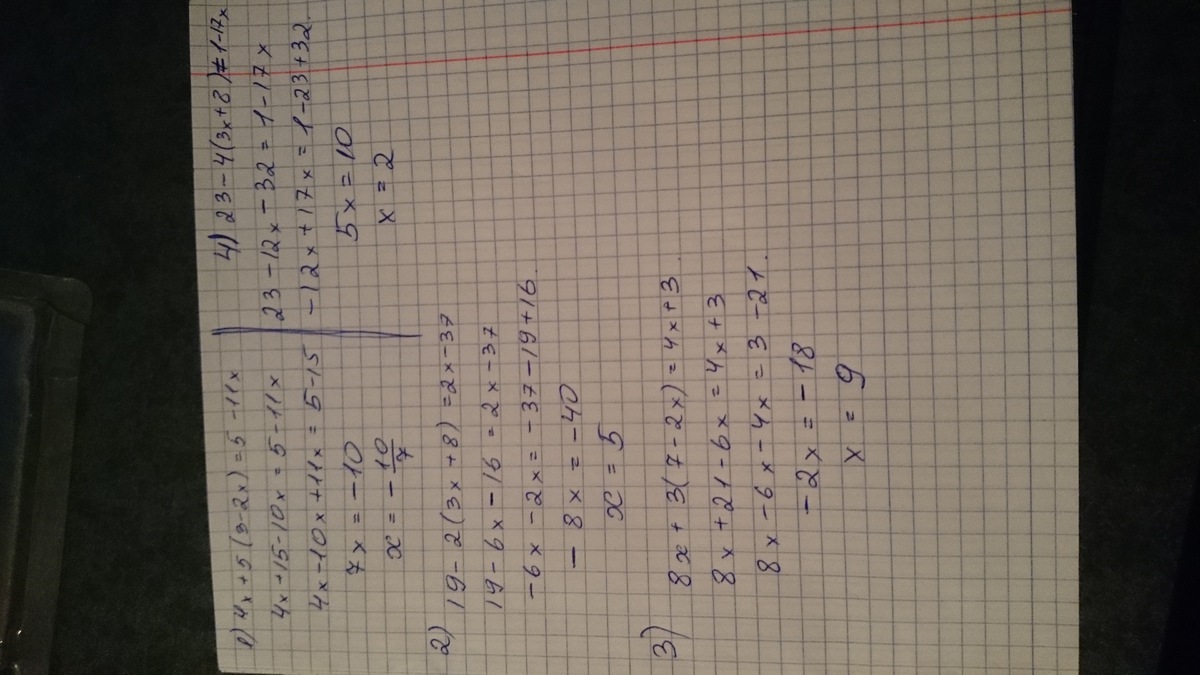 1) 4x+5(3-2x)=5-11x
4x+15-10x=5-11x
4x-10x+11x=5-15
7x=-10
x=-10/7
2) 19-2(3x+8)=2x-37
19-6x-16=2x-37
-6x-2x=-37-19+16
-8x=-40
x=5
3) 8x+3(7-2x)=4x+3
8x+21-6x=4x+3
8x-6x-4x=3-21.
-2x=-18
x=9
4) 23-4(3x+8)=1-17x
23-12x-32=1-17x
-12x+17x=1-23+32
5x=10
x=2